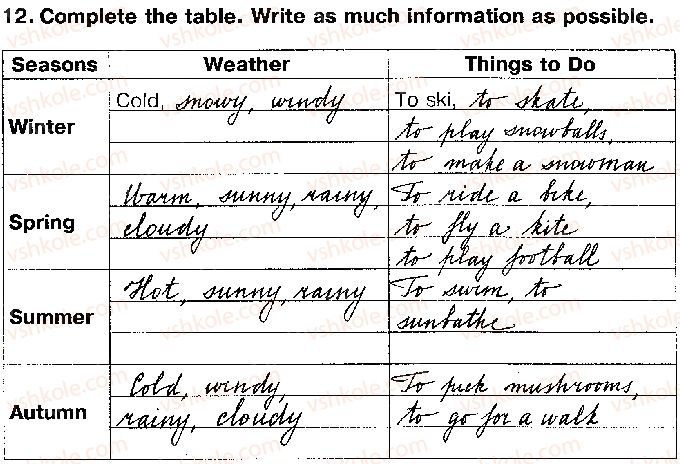 12. Complete the table. Write as much information as possible.
Seasons Weather Things to Do
Winter
Cold, snowy, windy
To ski, to skate,
to play snowballs,
to make a snowman
Spring
Warm, sunny, rainy,
cloudy
To ride a bike,
to fly a kite
to play football
Summer
Hot, sunny, rainy
To swim, to
sunbathe
Autumn
Cold, windy,
rainy, cloudy
To pick mushrooms,
to go for a walk
vshkole.com